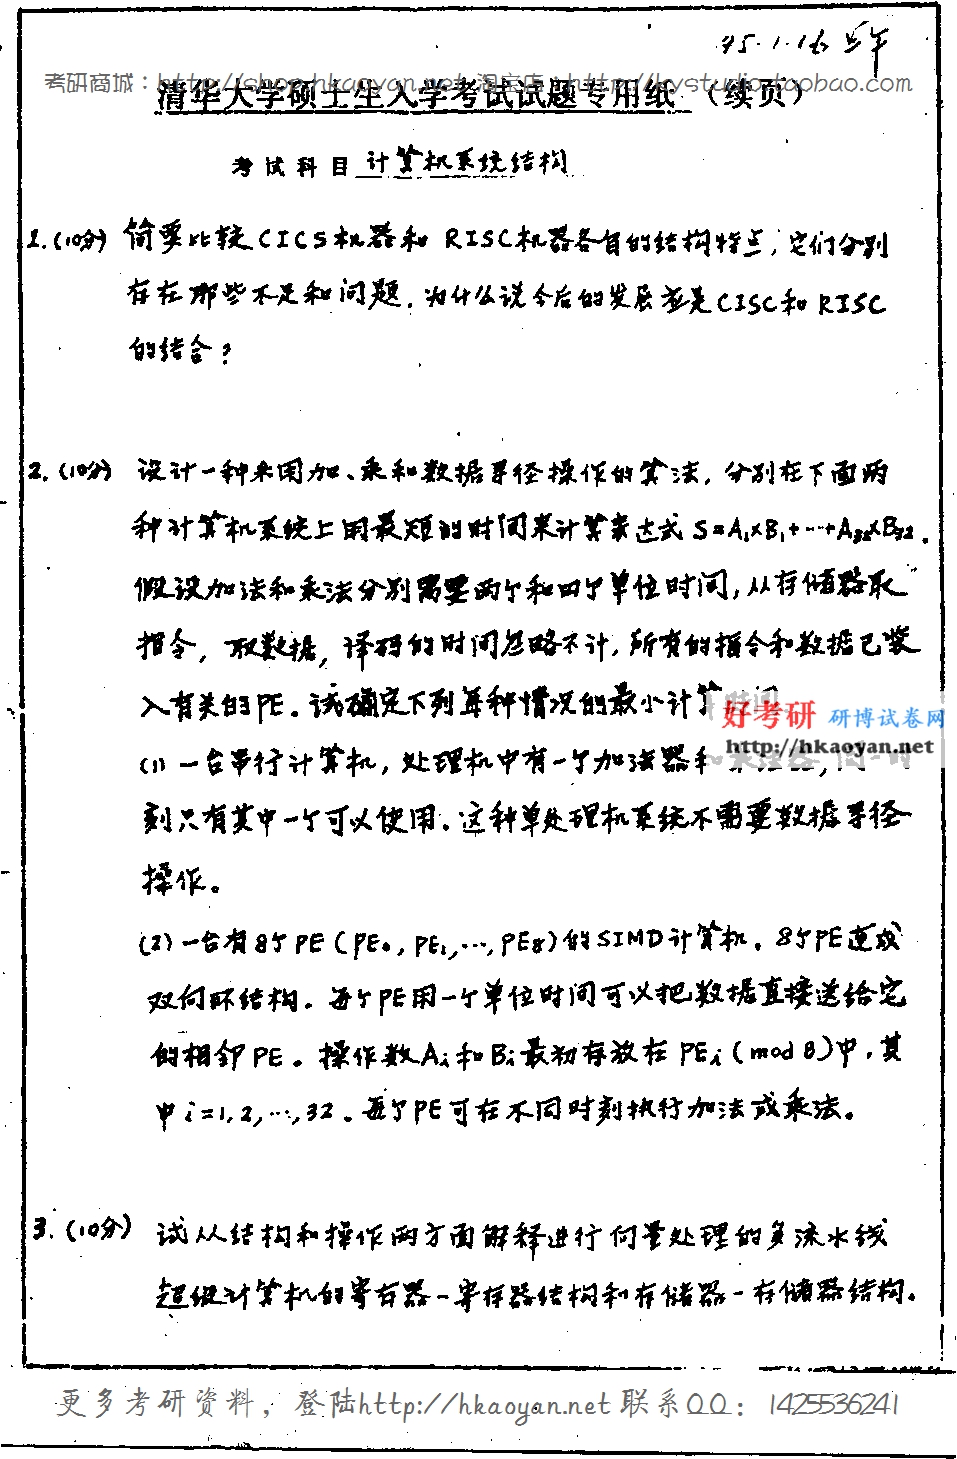 95.1.16 上午
考研商城：http://shop.hkaoyan.net 淘宝店：http://kystudio.taobao.com
清华大学硕士生入学考试试题专用纸（续页）
考试科目 计算机系统结构
1.(10分) 简要比较CICS机器和RISC机器各自的结构特点，它们分别
存在那些不足和问题．为什么说今后的发展会是CISC和RISC
的结合？
2.(10分) 设计一种采用加、乘和数据寻径操作的算法，分别在下面两
种计算机系统上用最短的时间来计算表达式 S=A₁×B₁+…+A₃₂×B₃₂．
假设加法和乘法分别需要两个和四个单位时间，从存储器取
指令，取数据，译码的时间忽略不计，所有的指令和数据已装
入有关的PE。试确定下列每种情况的最小计算时间。
好考研 研博试卷网
http://hkaoyan.net
(1) 一台串行计算机，处理机中有一个加法器和
刻只有其中一个可以使用．这种单处理机系统不需要数据寻径
操作。
(2) 一台有8个PE (PE₀, PE₁, …, PE₈) 的SIMD计算机。8个PE连成
双向环结构。每个PE用一个单位时间可以把数据直接送给它
的相邻PE。操作数Aᵢ和Bᵢ最初存放在PEᵢ (mod 8) 中，其
中 i=1, 2, …, 32。每个PE可在不同时刻执行加法或乘法。
3.(10分) 试从结构和操作两方面解释进行向量处理的多流水线
超级计算机的寄存器－寄存器结构和存储器－存储器结构。
更多考研资料，登陆http://hkaoyan.net 联系QQ：1425536241